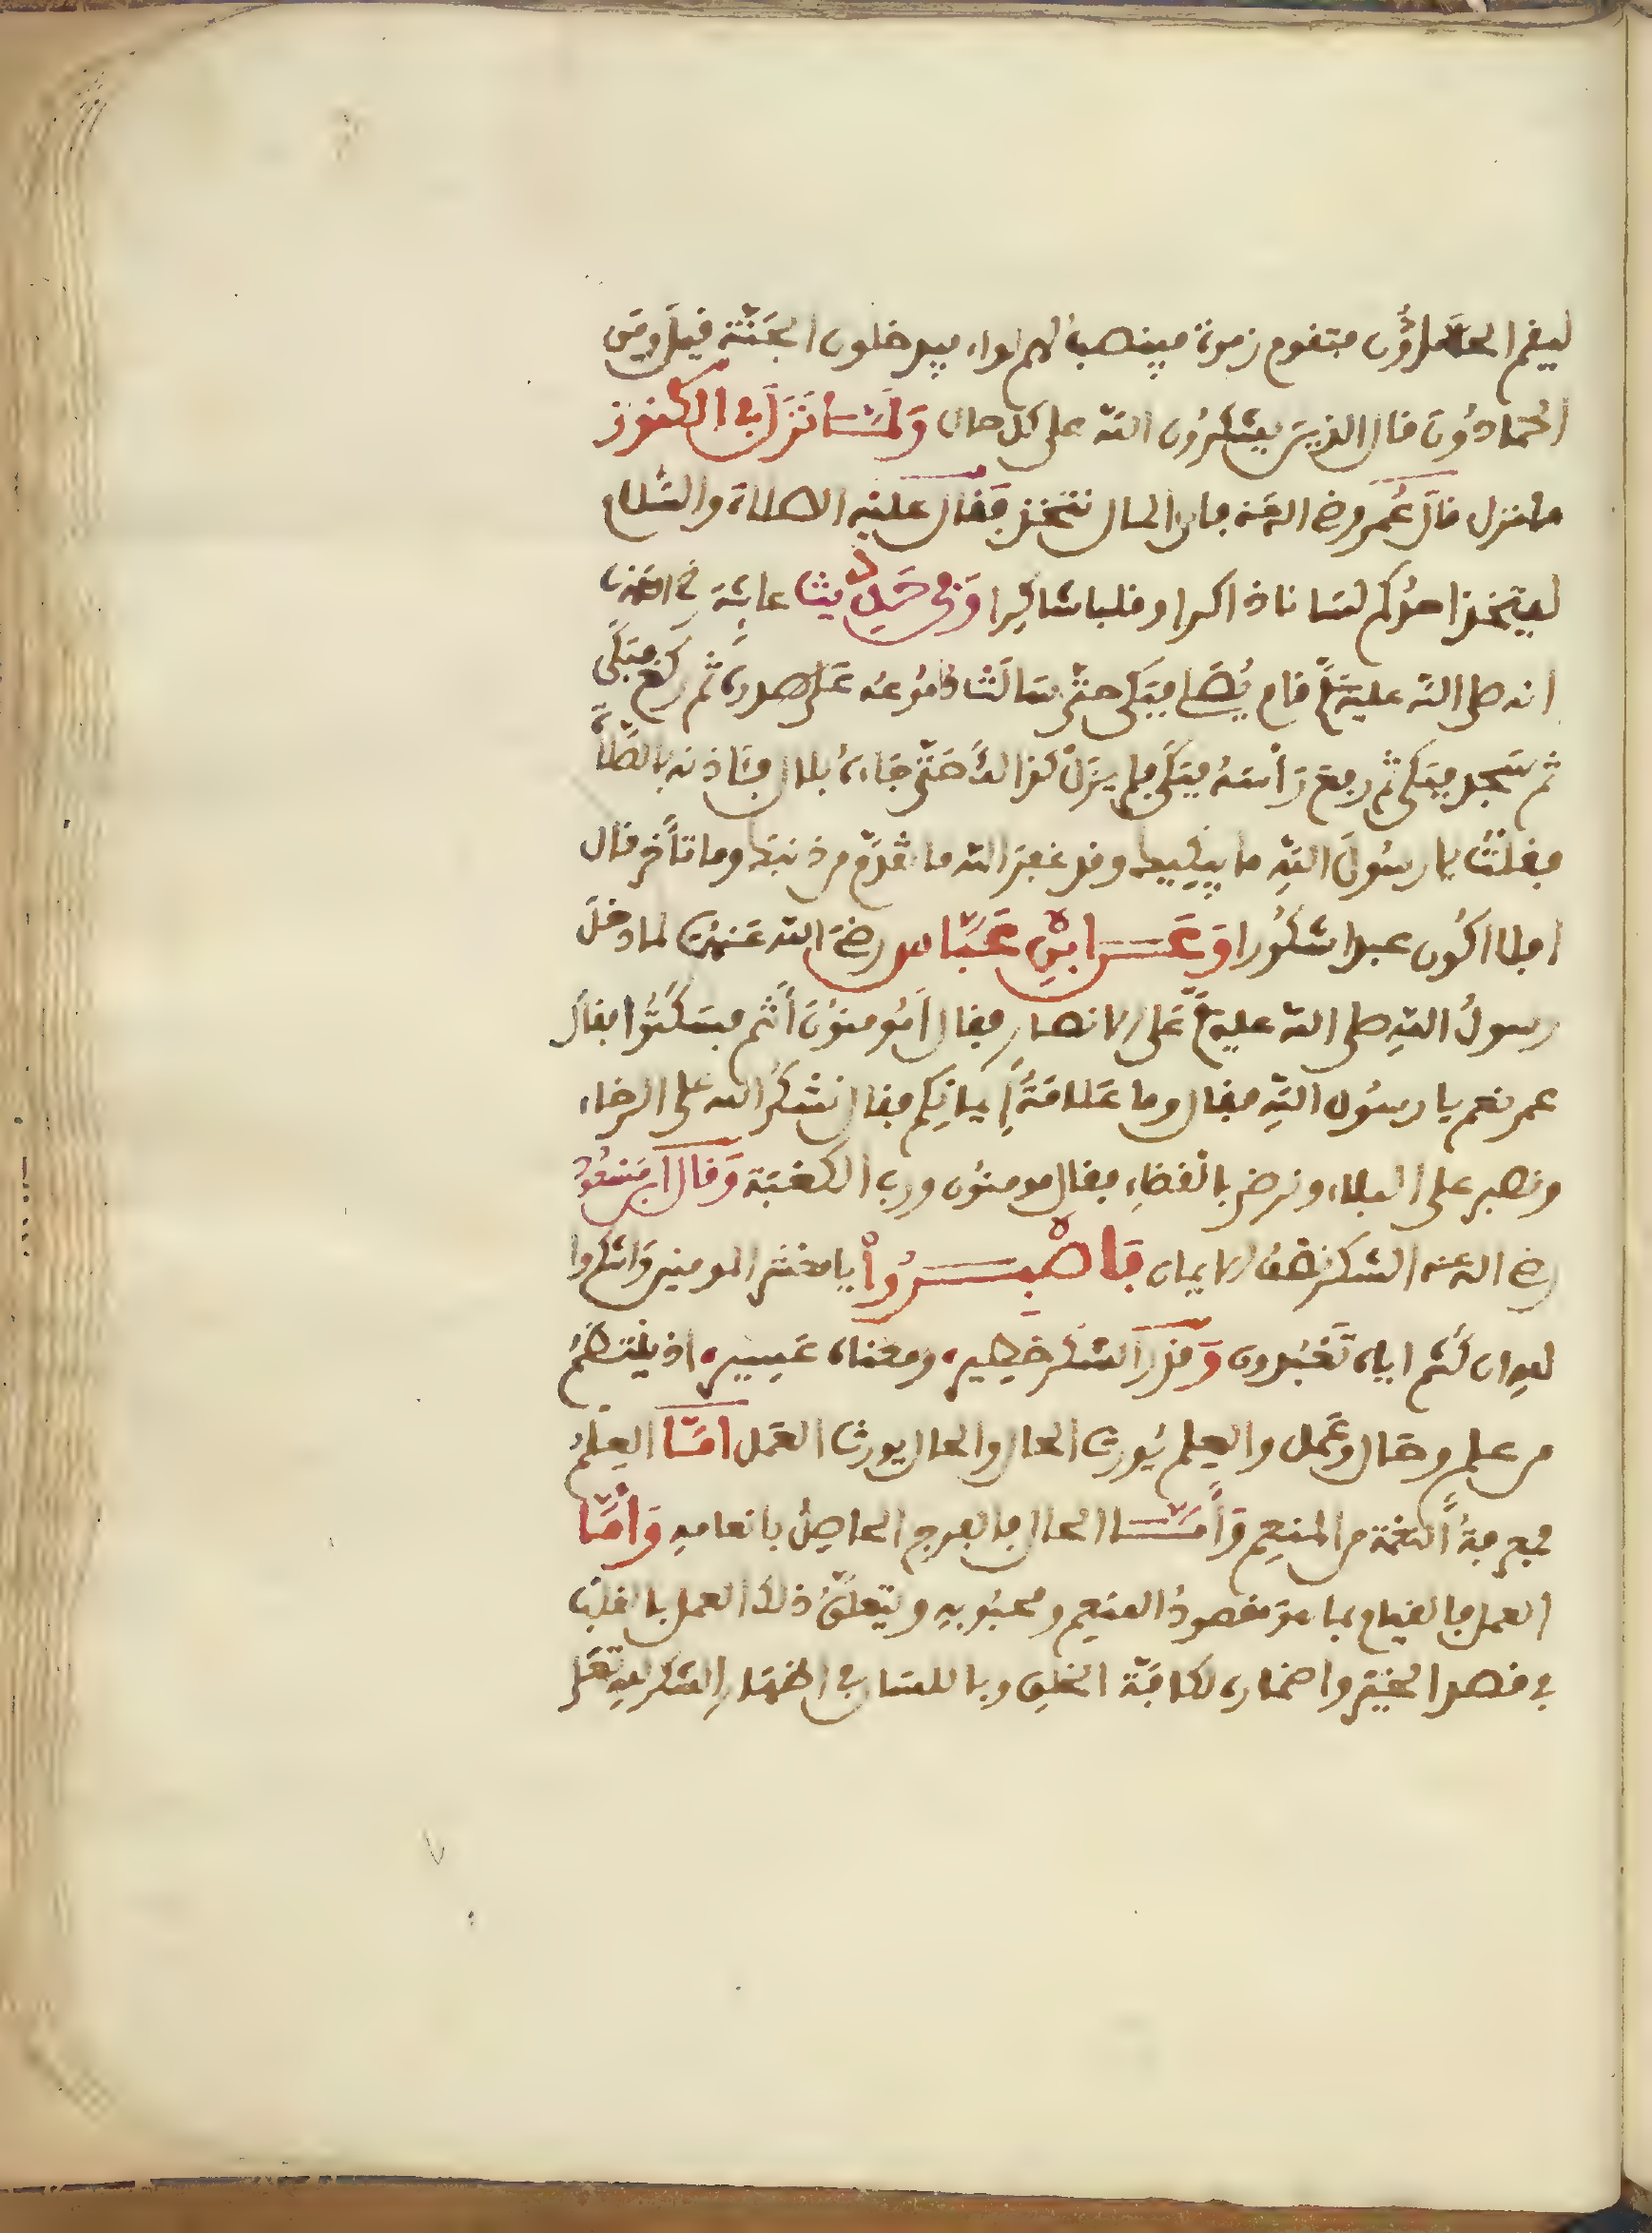 ليقم الحمادُّون فتقوم زمرة فينصب لهم لواء فيدخلون الجَنّة قيلَ ومَن
الحمّادُونَ قال الذينَ يشكرُون اللّه على كل حال وَلَمّـــا نَزَلَ في الكنوز
ما نزل قالَ عُمَر رضي الله عَنه فاي المال نتخذ فَقال عليْه الصلاة والسّلام
ليتّخذ احدُكم لسَانا ذاكرا وقلبا شاكِرا وَفي حَدِيث عايشة رضي الله عنها
انه صلى اللّه عليه وسلم قام يُصَلي فبَكى حتّى سَالَتْ دُمُوعُه عَلى صدرهِ ثم رَكَعَ فبَكَى
ثم سَجد فبَكى ثم رفعَ رَأسَهُ فبَكَى فلم يزلْ كذالكَ حَتّى جَاءهُ بلال فئاذنه بالصّلاة
فقلتُ يا رسُولَ اللّهِ ما يبكيك وقد غفرَ اللّه ما تقدَّم من ذنبك وما تأخر قال
افلا اكُون عبدا شكُورا وَعَــن ابْنِ عَبّاس رضيَ اللّه عَنهُما لما دخلَ
رسولُ اللّهِ صلى اللّه عليه وسلم عَلى الانصارِ فقال اَمُومنُونَ أنتم فسَكَتُوا فقالَ
عمر نعم يا رسُول اللّهِ فقال وما عَلامَةُ إيمانِكم فقال نَشْكرُ الله على الرخاء
ونصبر على البلاء ونرضى بالقضاءِ فقال مومنُون ورب الكَعْبَة وَقال ابن مَسْعُود
رضي الله عنه الشكر نصْفُ الايمان فَاصْبِــرُوا يا معْشر المومنين وَاشكروا
لله ان كُنتم اياه تَعْبُدون وَقدر الشكر خطير، ومعناه عَسِير، اذ يلتئمُ
من علم وحَال وعَمل والعِلم يُورث الحال والحال يورث العَمل امّــا العِلمُ
فمعرفةُ النّعْمة من المنعِم وَأمّــا الحال فالفرح الحاصِلُ بانعامهِ وَأمّــا
العمل فالقيام بما هوَ مقصودُ المنعِم ومحبُوبهِ ويتعلقُ ذلكَ العمل بالقلب
في قصد الخيْر واضماره لكافّة الخلق وباللسَان في اظهَارِ الشكر للهِ تعَلى